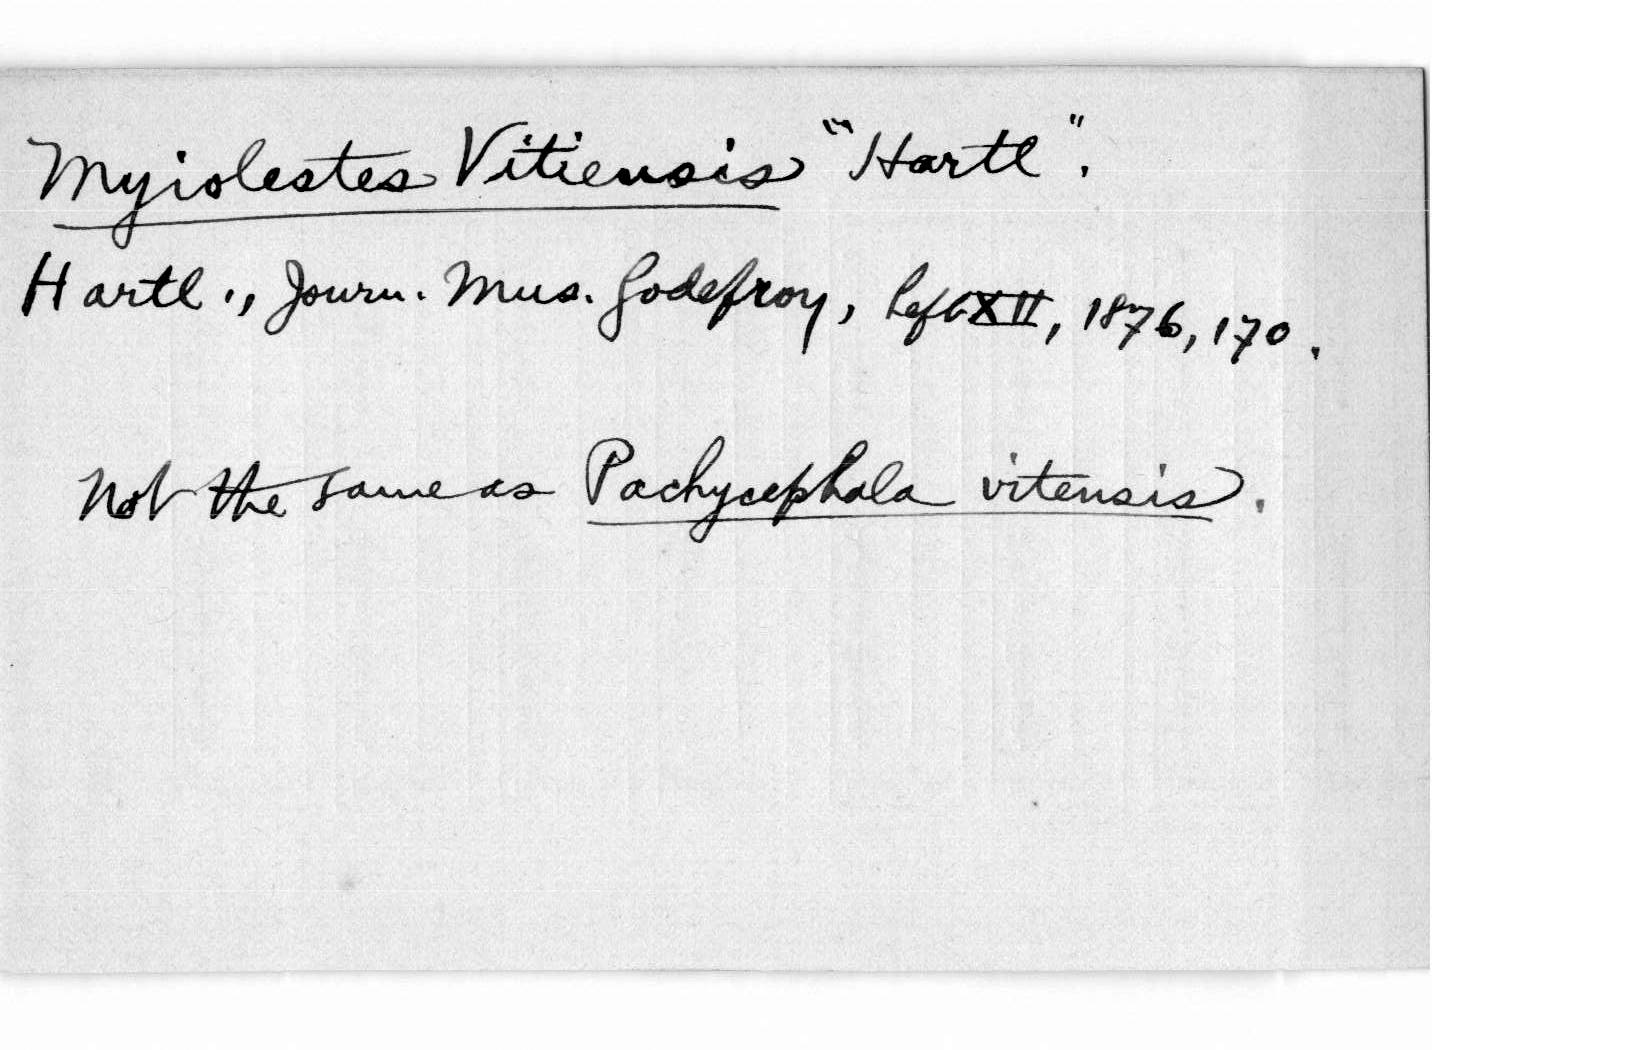 Myiolestes Vitiensis "Hartl".
Hartl., Journ. Mus. Godefroy, heft XII, 1876, 170.
Not the same as Pachycephala vitensis.